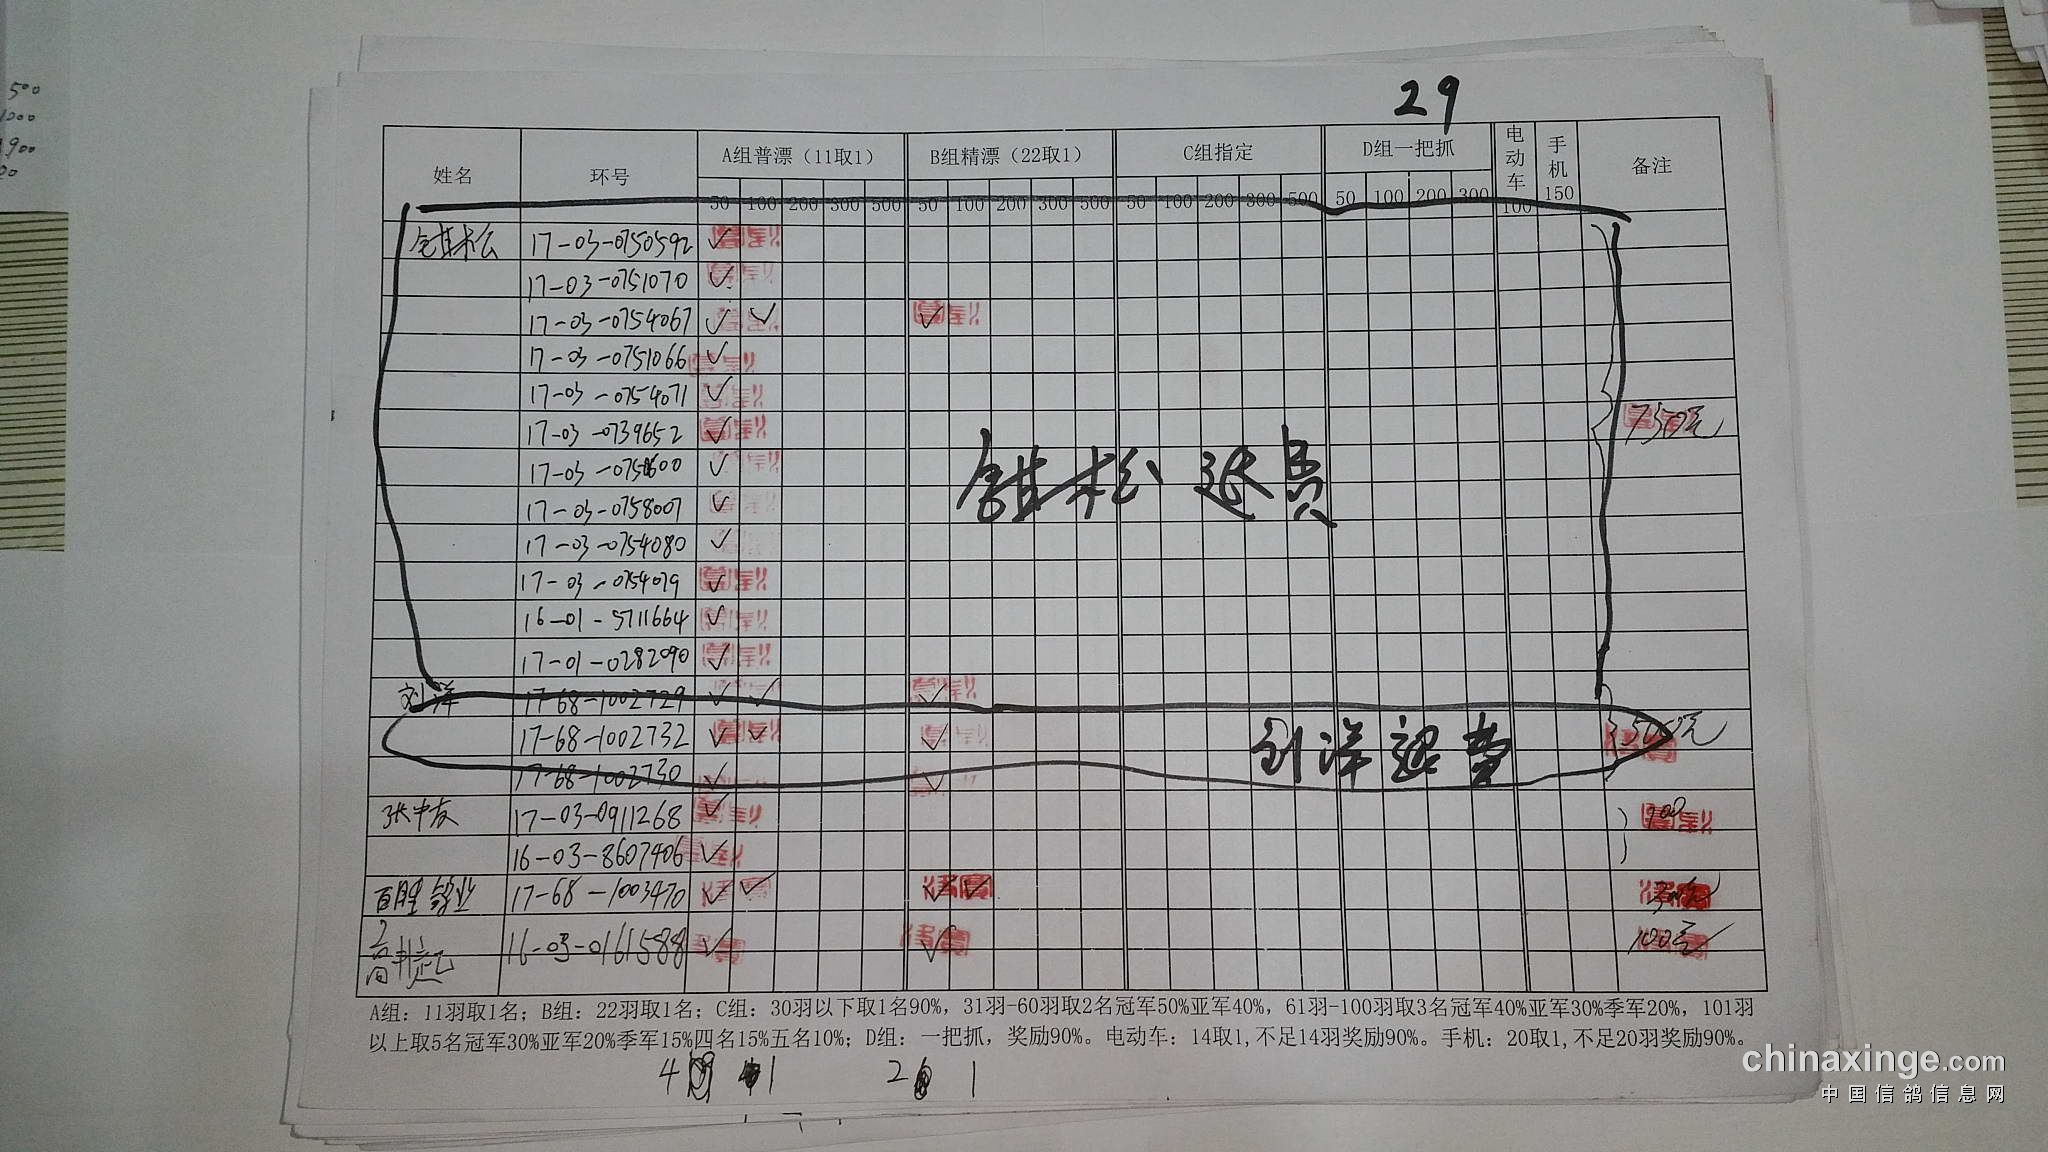 500
1000
29
姓名 环号 A组普漂（11取1） B组精漂（22取1） C组指定 D组一把抓 电动车100 手机150 备注
50 100 200 300 500 50 100 200 300 500 50 100 200 300 500 50 100 200 300
17-03-0750592 ✓
17-03-0751070 ✓
17-03-0754067 ✓ ✓ ✓
17-03-0751066 ✓
17-03-0754071 ✓
17-03-0739652 ✓ 750元
17-03-0750600 ✓
退费
17-03-0758007 ✓
17-03-0754080 ✓
17-03-0754079 ✓
16-01-5711664 ✓
17-01-0282090 ✓
刘洋 17-68-1002729 ✓ ✓ ✓
17-68-1002732 ✓ ✓ ✓ 刘洋退费
17-68-1002730 ✓ ✓
张中友 17-03-0911268 ✓ 100
16-03-8607406 ✓
百胜鸽业 17-68-1003470 ✓ ✓ ✓ ✓
16-03-0161588 ✓ ✓ 100元
A组：11羽取1名；B组：22羽取1名；C组：30羽以下取1名90%，31羽-60羽取2名冠军50%亚军40%，61羽-100羽取3名冠军40%亚军30%季军20%，101羽
以上取5名冠军30%亚军20%季军15%四名15%五名10%；D组：一把抓，奖励90%。电动车：14取1,不足14羽奖励90%。手机：20取1,不足20羽奖励90%。
4 1 2 1
chinaxinge.com
中国信鸽信息网